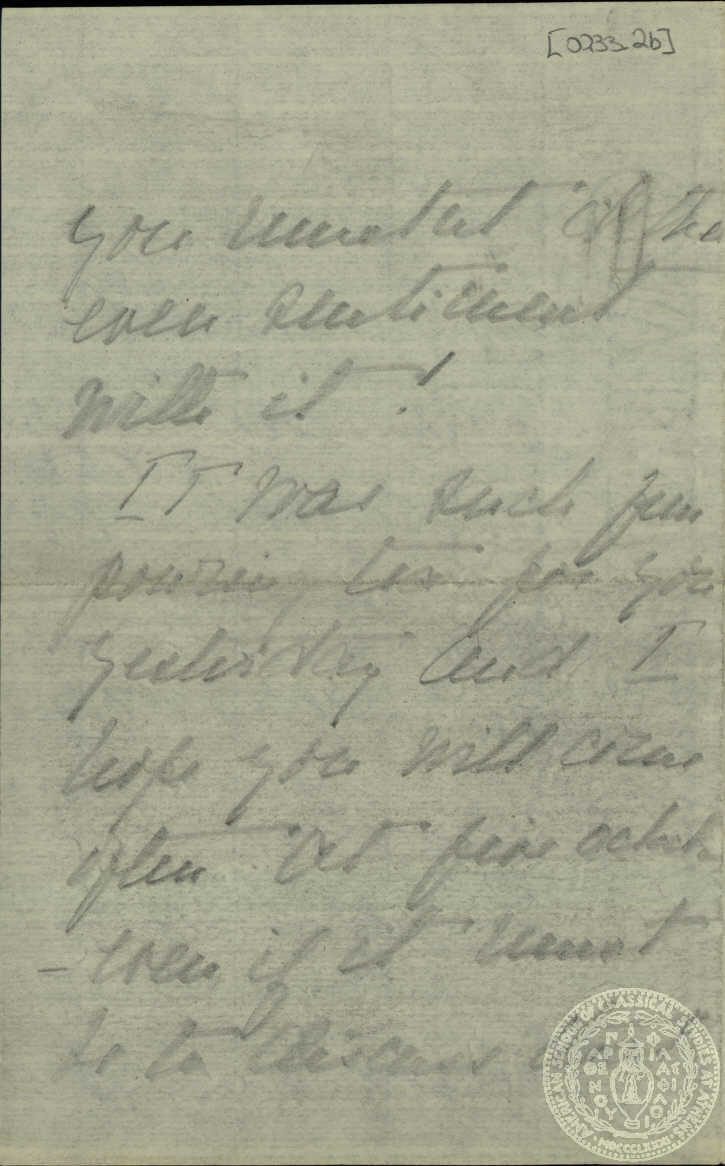 [0233.2b]
you must eat
even sentiment
with it!
IT was such fun
pouring tea for you
yesterday and I
hope you will come
often at five
– even if it must
be to discuss
AMERICAN SCHOOL OF CLASSICAL STUDIES AT ATHENS
ΠΑΡΘΕΝΟΥ ΦΙΛΑΣ ΦΙΛΙΟΥ
MDCCCLXXXI